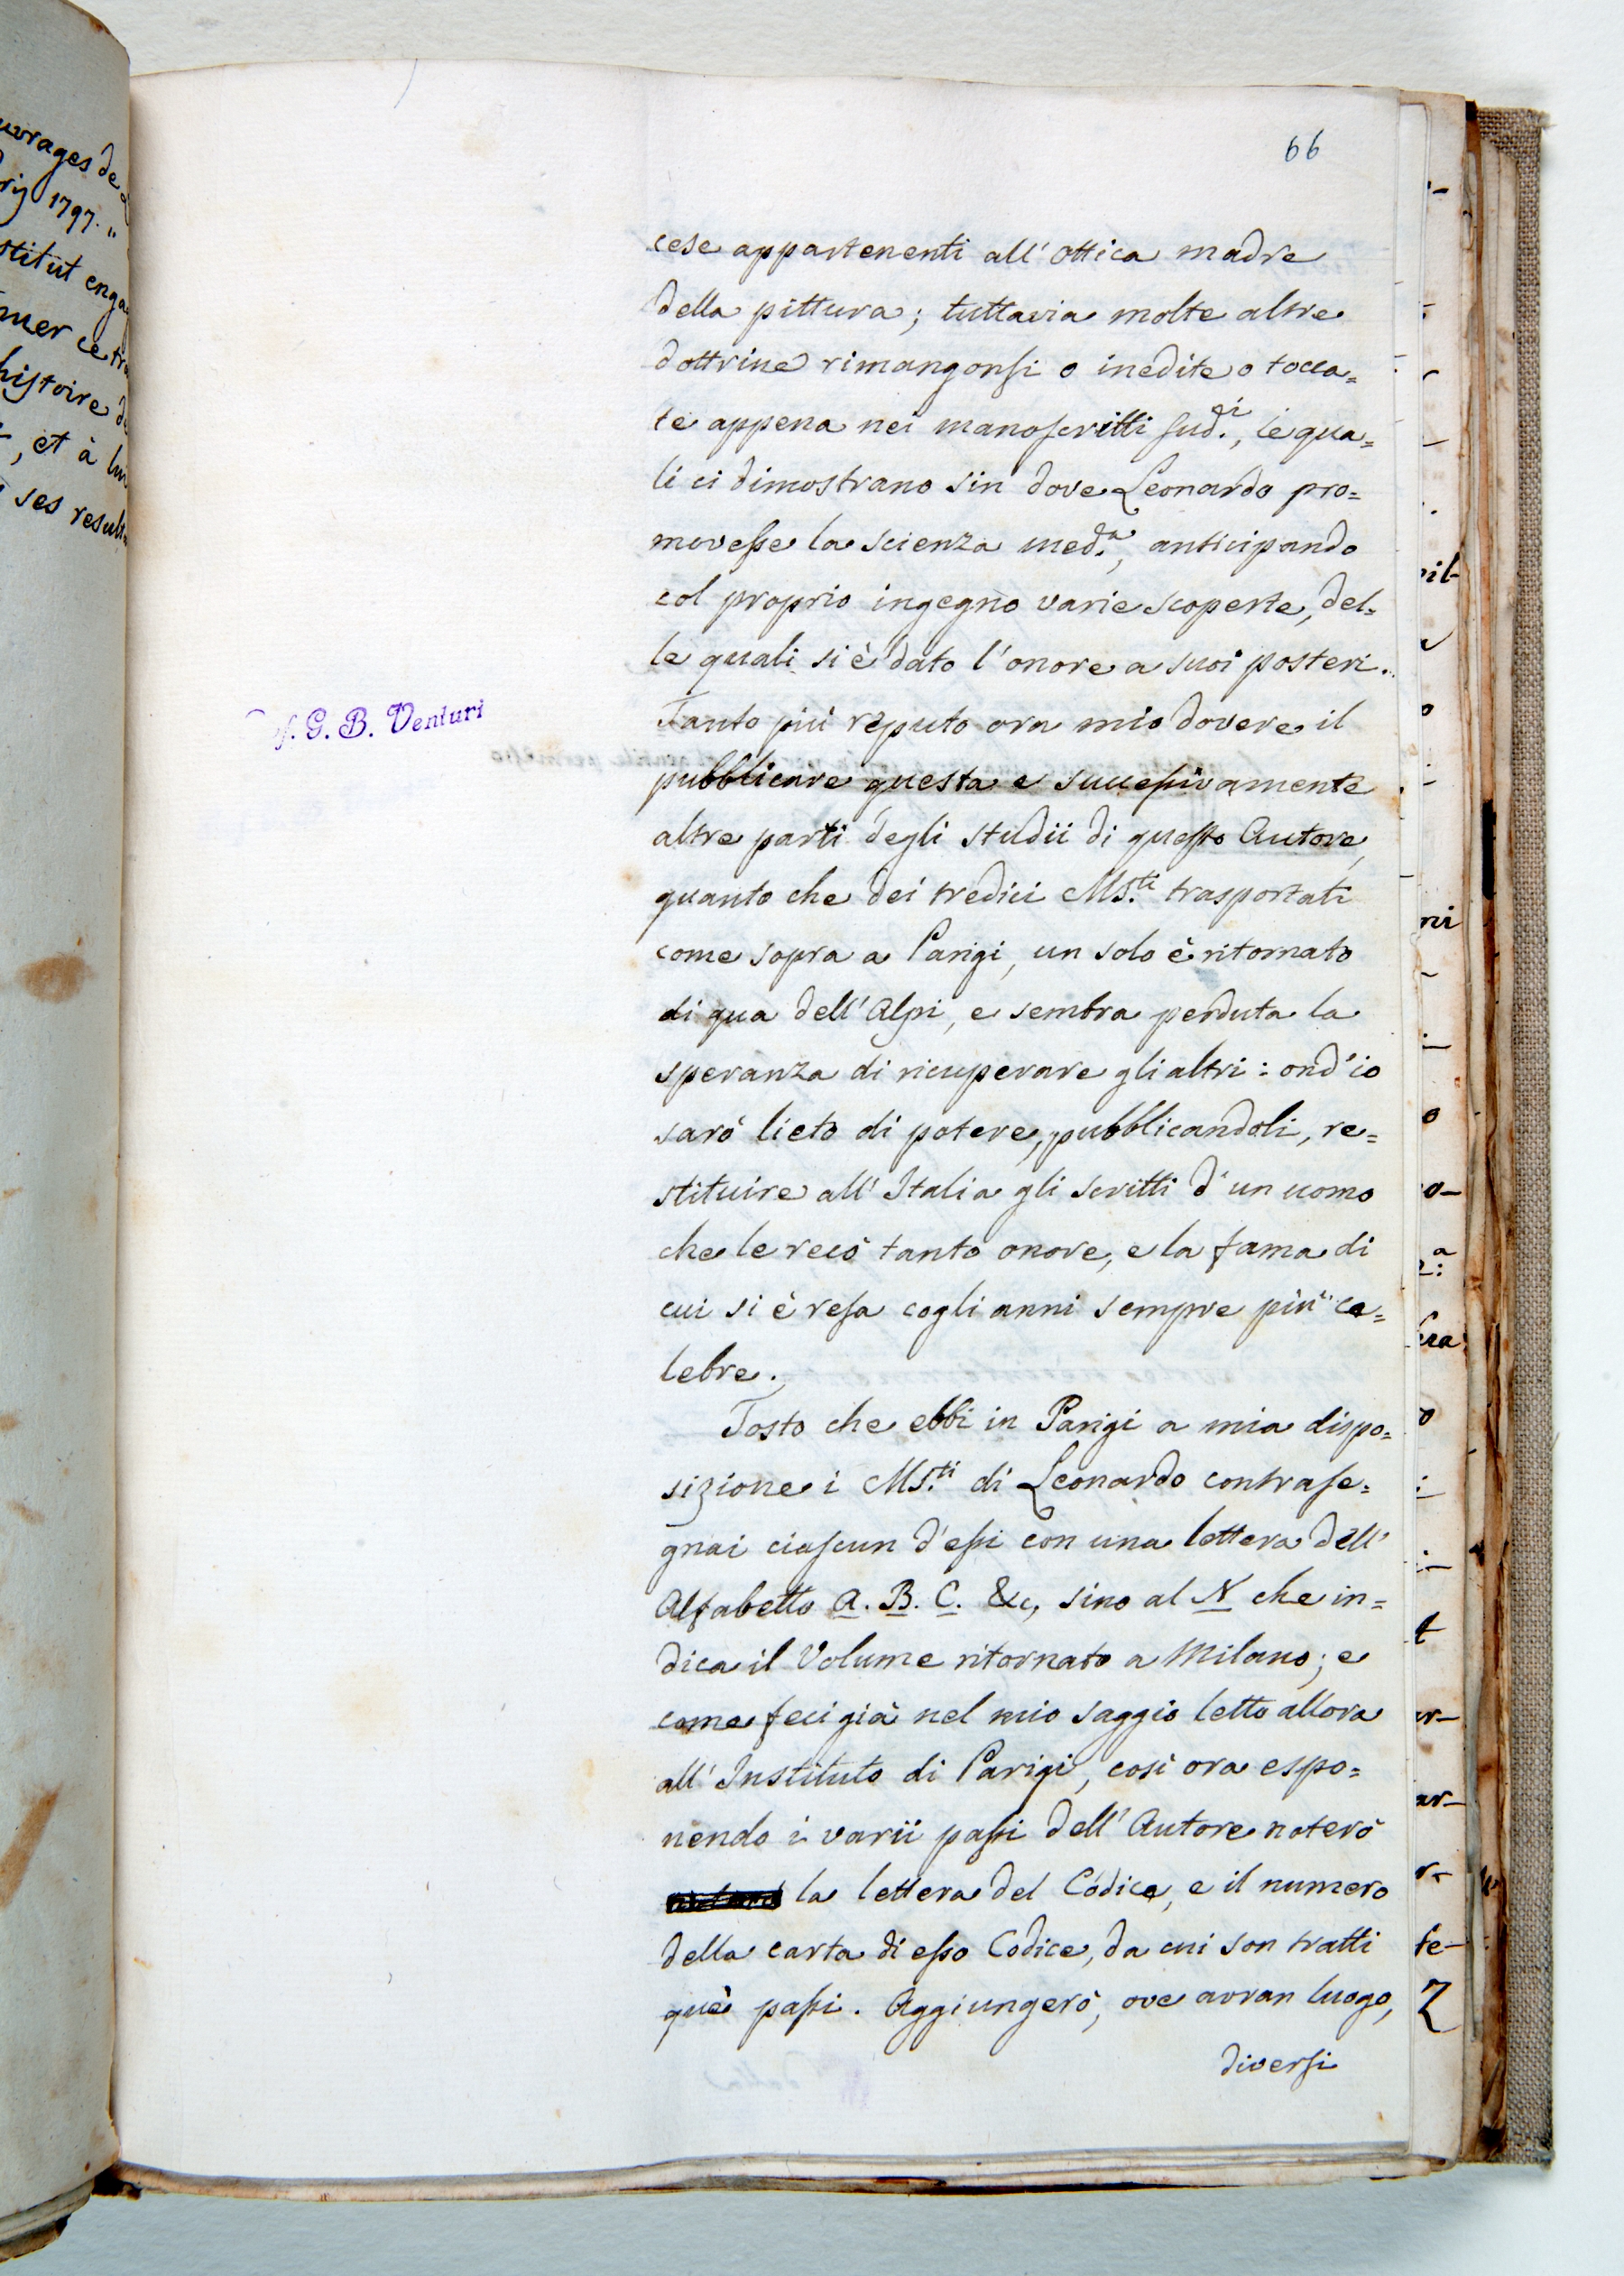 uvrages de
1797."
stitut enga
mer ce tra
histoire de
, et à lui
ses result
66
cese appartenenti all'ottica madre
della pittura; tuttavia molte altre
dottrine rimangonsi o inedite o tocca=
te appena nei manoscritti sud.i, le qua=
li ci dimostrano sin dove Leonardo pro=
movesse la scienza med.a, anticipando
col proprio ingegno varie scoperte, del=
le quali si è dato l'onore a suoi posteri.
Tanto più reputo ora mio dovere il
pubblicare questa e successivamente
altre parti degli studii di questo Autore,
quanto che dei tredici MS.ti trasportati
come sopra a Parigi, un solo è ritornato
di qua dell'Alpi, e sembra perduta la
speranza di ricuperare gli altri: ond'io
sarò lieto di potere, pubblicandoli, re=
stituire all'Italia gli scritti d'un uomo
che le recò tanto onore, e la fama di
cui si è resa cogli anni sempre più ce=
lebre.
Tosto che ebbi in Parigi a mia dispo=
sizione i MS.ti di Leonardo contrase=
gnai ciascun d'essi con una lettera dell'
Alfabetto A. B. C. &c, sino al N che in=
dica il Volume ritornato a Milano; e
come feci già nel mio saggio letto allora
all'Instituto di Parigi, così ora espo=
nendo i varii passi dell'Autore noterò
la lettera del Códice, e il numero
della carta di esso Codice, da cui son tratti
què passi. Aggiungerò, ove avran luogo,
diversi
f. G. B. Venturi